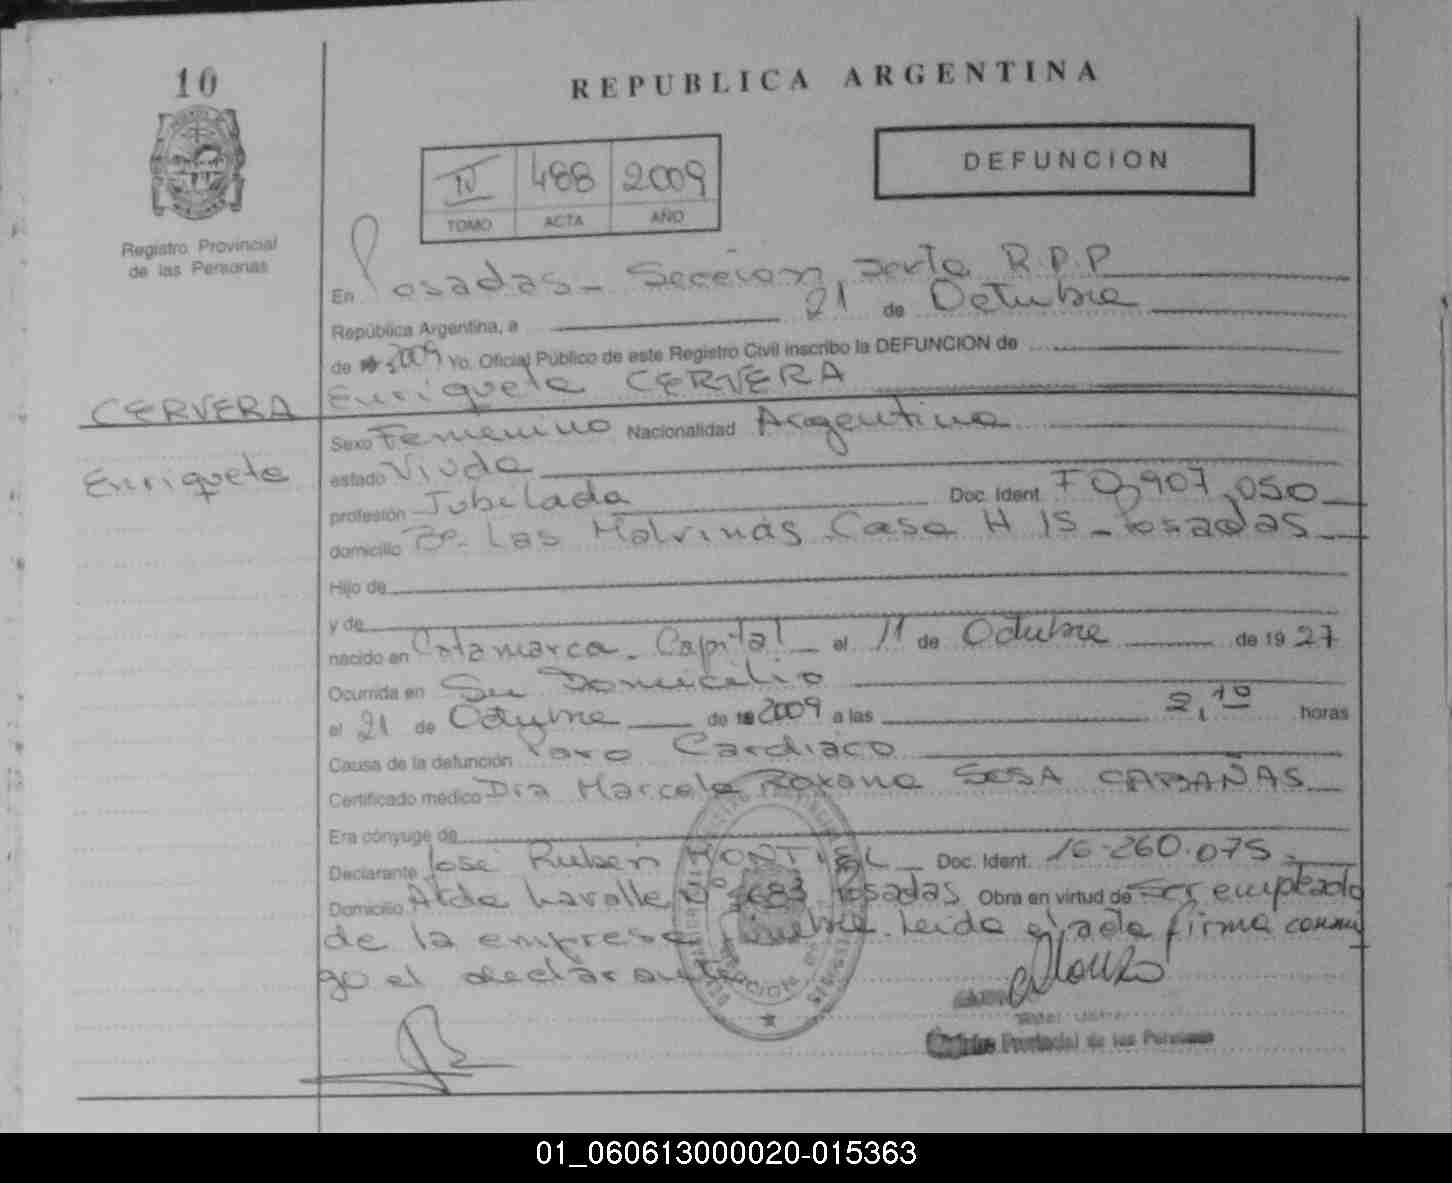 10
REPUBLICA ARGENTINA
DEFUNCION
IV 488 2009
TOMO ACTA AÑO
Registro Provincial
de las Personas
En Posadas - Seccion sexta R.P.P
República Argentina, a 21 de Octubre
de 19 2009 Yo, Oficial Público de este Registro Civil inscribo la DEFUNCION de
Enriqueta CERVERA
CERVERA
Enriqueta
Sexo Femenino Nacionalidad Argentina
estado Viuda
profesión Jubilada Doc. Ident. F 0,907,050
domicilio Bº Las Malvinas Casa H 15 - Posadas
Hijo de
y de
nacido en Catamarca - Capital el 11 de Octubre de 19 27
Ocurrida en Su Domicilio
el 21 de Octubre de 19 2009 a las 2,10 horas
Causa de la defunción Paro Cardiaco
Certificado médico Dra Marcela Roxana SESA CABAÑAS
Era cónyuge de
Declarante José Ruben MONTIEL Doc. Ident. 16.260.075
Domicilio Atda Lavalle Nº 3683 Posadas Obra en virtud de Ser empleado
de la empresa fúnebre. Leida el acta firma conmi
go el declarante
Alonzo
Provincial de las Personas
01_060613000020-015363